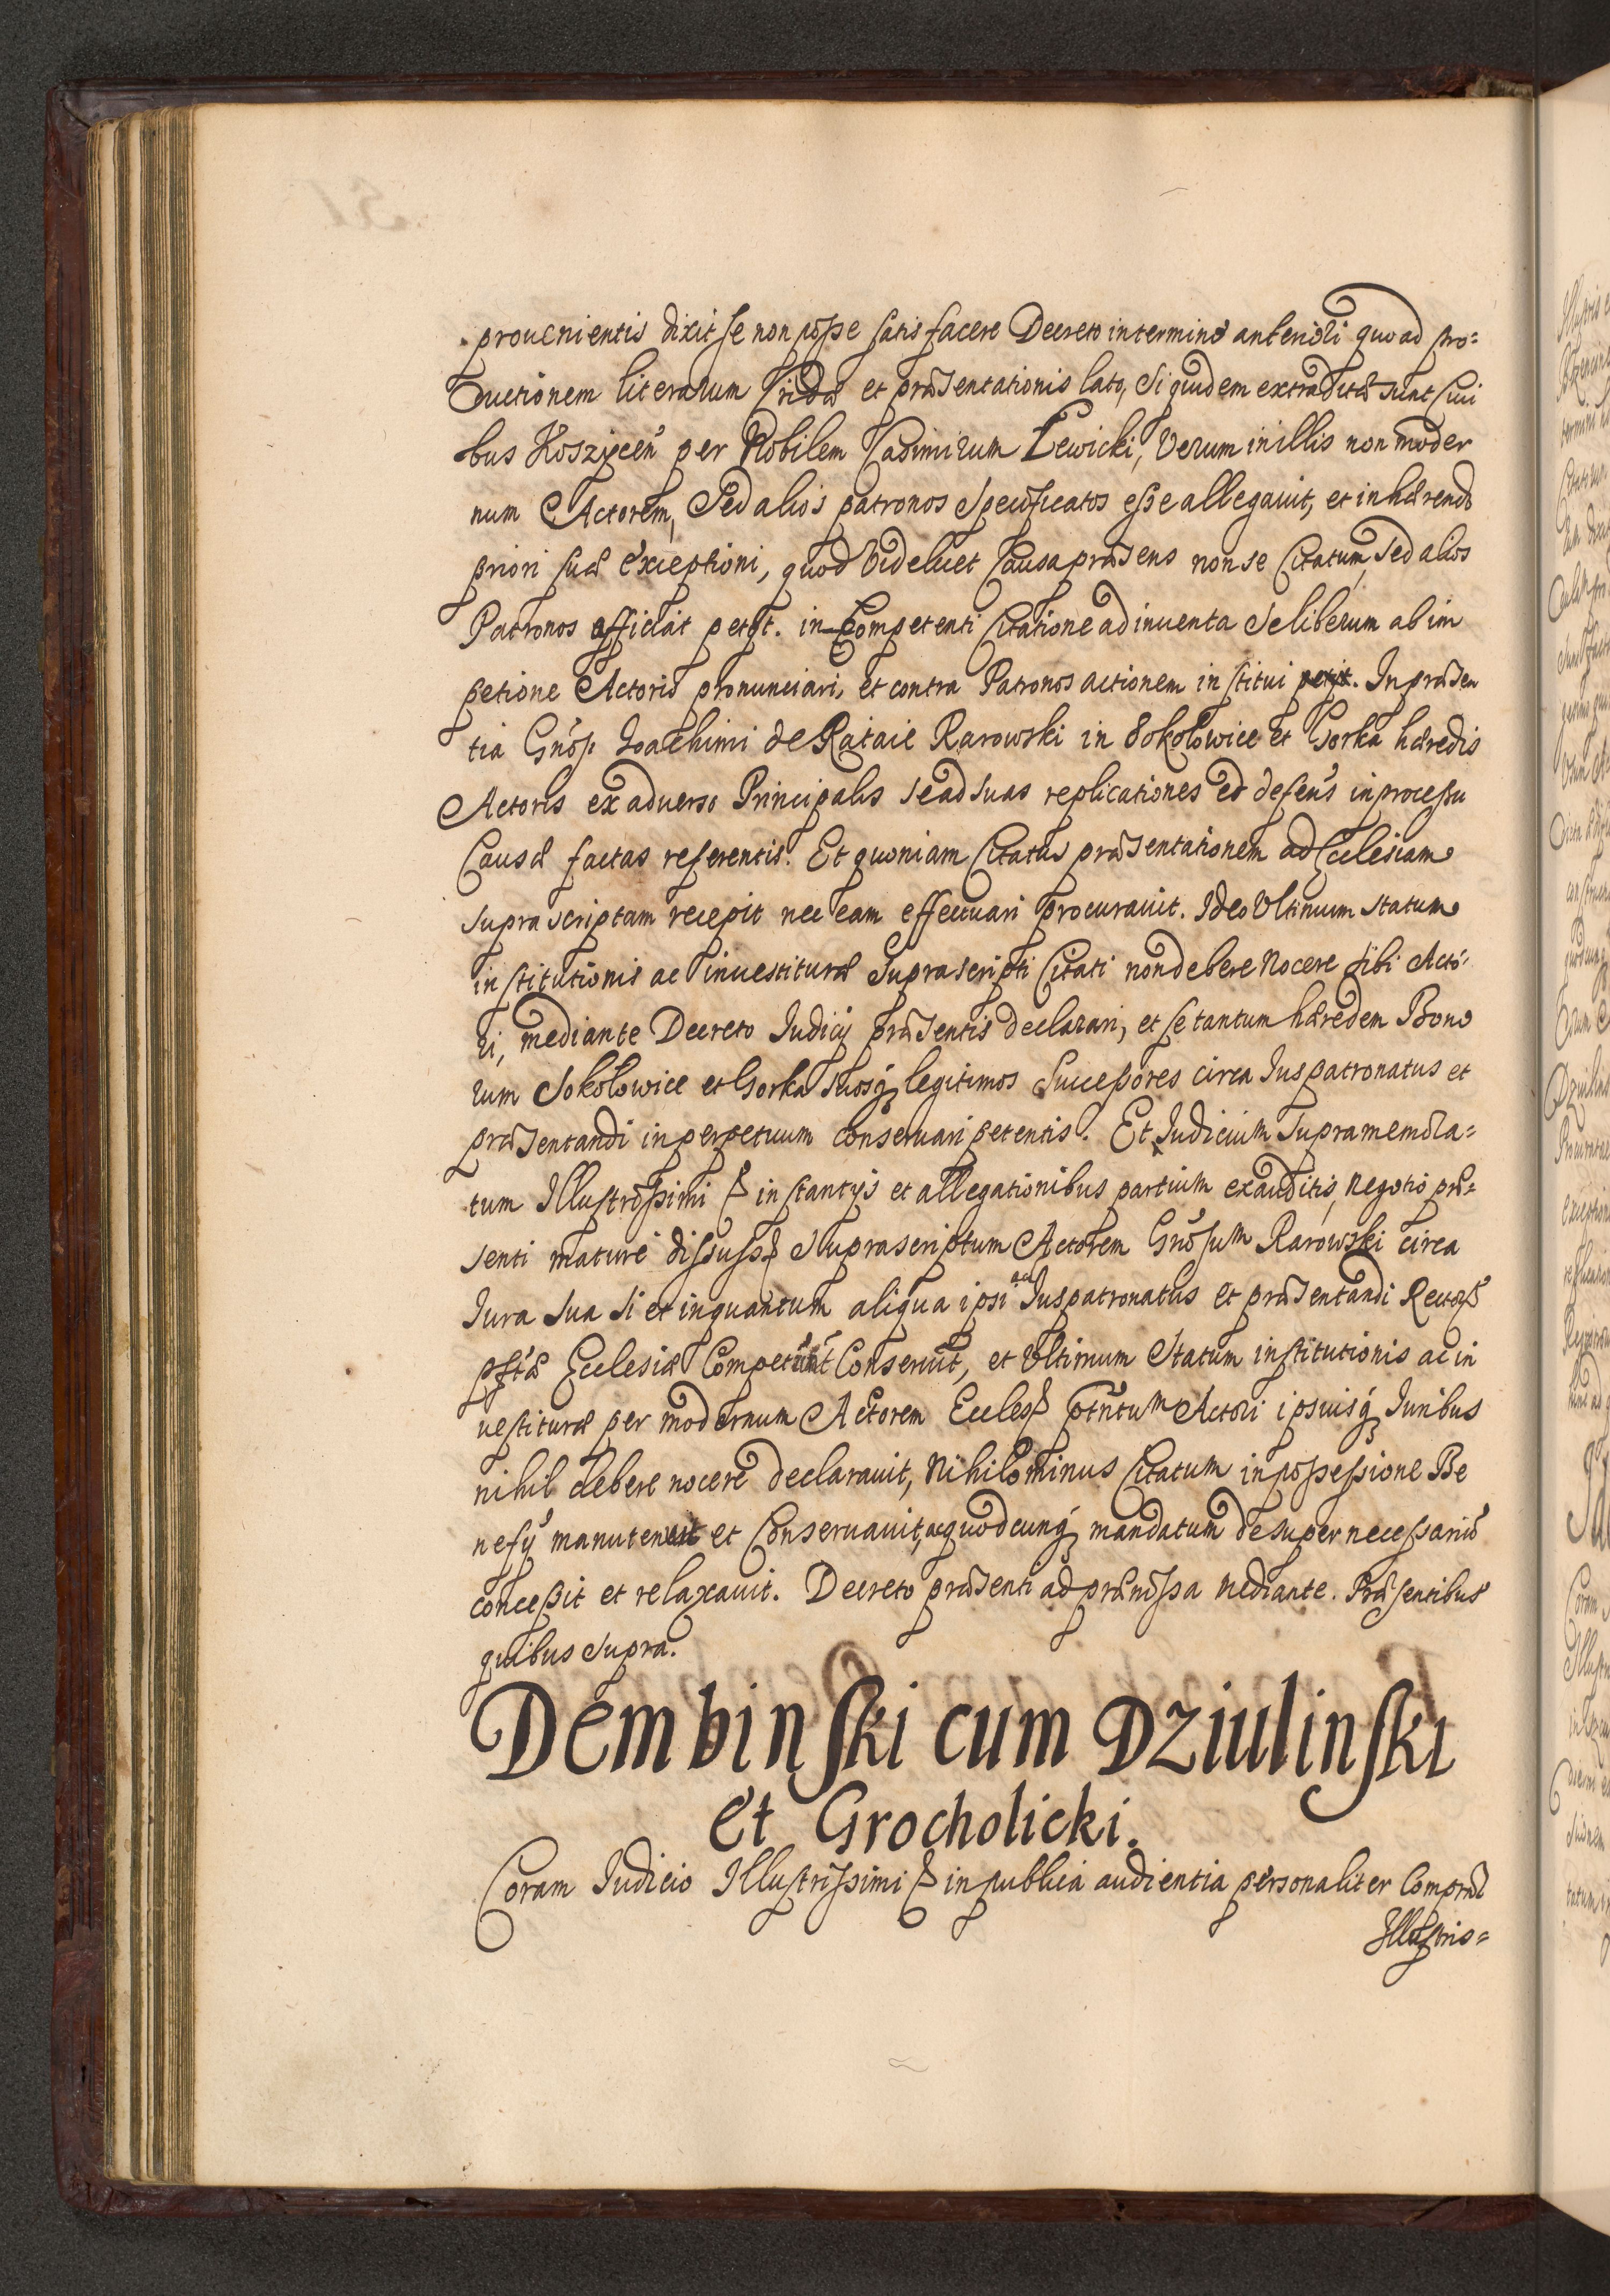 prouenientis dixit se non posse satis facere Decreto in termino anteriori quoad pro=
ductionem literarum Cridæ et præsentationis lato, Siquidem extraditæ sunt Ciui
bus Koszycen per Nobilem Casimirum Lewicki, Verum in illis non moder
num Actorem, Sed alios patronos Specificatos esse allegauit, et inhærendo
priori suæ exceptioni, quod Videlicet Causa præsens non se Citatum, sed alios
Patronos afficiat petyt. in Competenti Citatione adinuenta Se liberum ab im
petione Actoris pronunciari, et contra Patronos actionem institui petyt. In præsen
tia Gnosi Joachimi de Rataie Rarowski in Sokołowice et Gorka hæredis
Actoris ex aduerso Principalis se ad suas replicationes et defens in processu
Causæ factas referentis. Et quoniam Citatus præsentationem ad Ecclesiam
supra scriptam recepit nec eam effectuari procurauit. Ideo Vltimum statum
institutionis ac inuestituræ Suprascripti Citati non debere nocere sibi Acto=
ri, mediante Decreto Iudicij præsentis declarari, et se tantum hæredem Bono
rum Sokołowice et Gorka suosq legitimos Successores circa Iuspatronatus et
præsentandi in perpetuum conseruari petentis. Et Iudicium Supramemora=
tum Illustrissimi & instantijs et allegationibus partium exauditis, negotio præ=
senti mature discusso Suprascriptum Actorem Gnosum Rarowski circa
Iura sua si et inquantum aliqua ipsi ad Iuspatronatus et præsentandi Rectores
pstæ Ecclesiæ Competunt Conseruit, et Vltimum Statum institutionis ac in
uestituræ per modernum Actorem Eccles Actori ipsiusq Iuribus
nihil debere nocere declarauit, Nihilominus Citatum in possessione Be
nefy manutenuit et Conseruauit, acquodcunq mandatum desuper necessario
concessit et relaxauit. Decreto præsenti ad præmissa mediante. Præsentibus
quibus supra.
Dembinski cum Dziulinski
Et Grocholicki.
Coram Iudicio Illustrissimi & in publica audientia personaliter Compræ
Illustris=